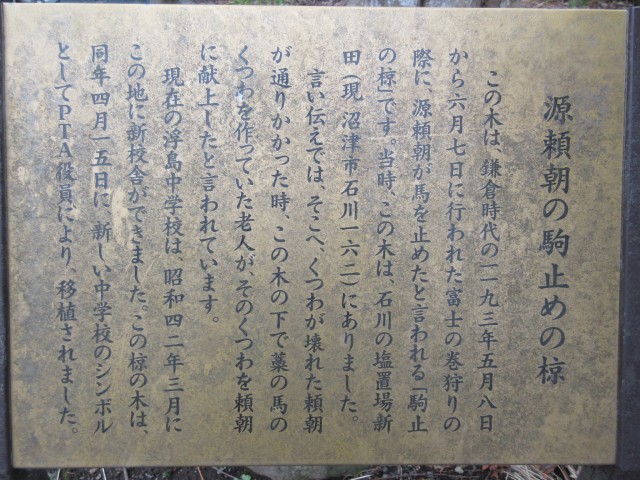 源頼朝の駒止めの椋
この木は、鎌倉時代の一一九三年五月八日
から六月七日に行われた富士の巻狩りの
際に、源頼朝が馬を止めたと言われる「駒止
の椋」です。当時、この木は、石川の塩置場新
田(現 沼津市石川一六二)にありました。
言い伝えでは、そこへ、くつわが壊れた頼朝
が通りかかった時、この木の下で藁の馬の
くつわを作っていた老人が、そのくつわを頼朝
に献上したと言われています。
現在の浮島中学校は、昭和四二年三月に
この地に新校舎ができました。この椋の木は、
同年四月一五日に、新しい中学校のシンボル
としてPTA役員により、移植されました。